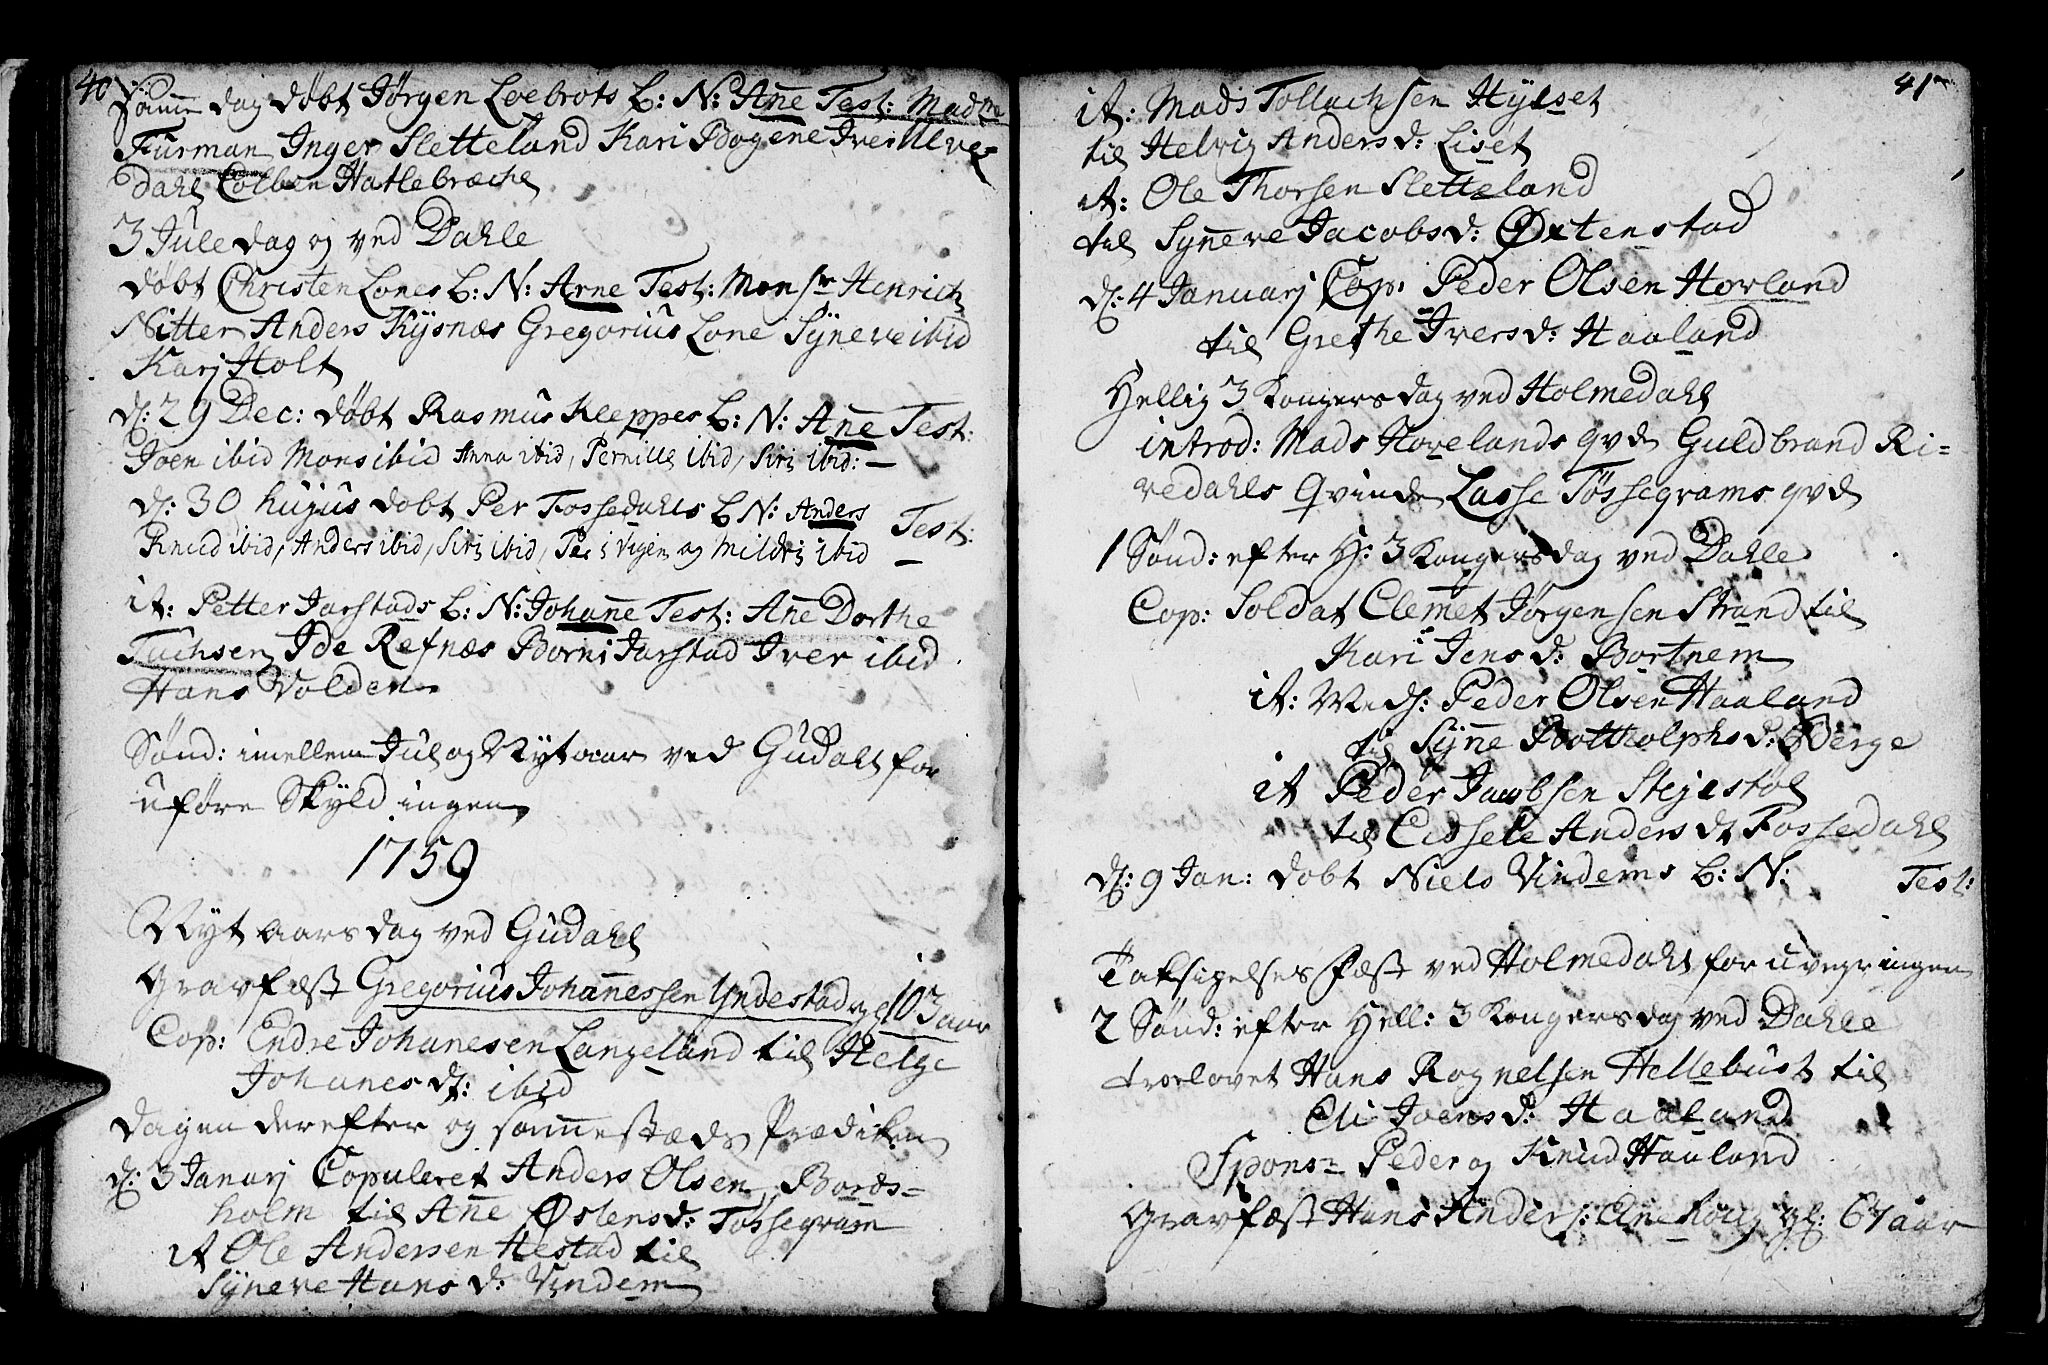 40
Samme dag døbt Jørgen Loebrots B: N: Añe Test: Madme
Furman Inger Sletteland Kari Bogene Iver Ulve-
dahl Colben Hatlebræche
3 Juledag og ved Dahle
døbt Christen Lones B: N: Arne Test: Monsr Henrich
Nitter Anders Kysnæs Gregorius Lone Syneve ibid
Karj Holt
d: 29 Dec: døbt Rasmus Kleppes B: N: Añe Test:
Joen ibid Mons ibid Anna ibid, Pernille ibid, Siri ibid: —
d: 30 hujus døbt Per Fossedahls B: N: Anders Test:
Knud ibid, Anders ibid, Siri ibid, Per i Vigen og Mildri ibid —
it: Petter Jarstads B: N: Johañe Test: Añe Dorthe
Tuchsen Ide Refnæs Borni Jarstad Iver ibid
Hans Volden
Sønd: imellem Jul og Nytaar ved Gudahl for
uføre Skyld ingen
1759
Nyt aars dag ved Gudahl
Gravfæst Gregorius Johañessen Yndestad gl 103 aar
Cop: Endre Johanesen Langeland til Helge
Johanes d: ibid
Dagen derefter og sam̃estæds Prædiken
d: 3 Januarj Copuleret Anders Olsen Bords-
holm til Añe Østens d: Tossegram
it Ole Andersen Hestad til
Syneve Hans d: Vindem
41
it: Mads Tollachsen Hylset
til Helvig Anders d: Liset
it: Ole Thorsen Sletteland
til Syñeve Jacobs d: Øxtenstad
d: 4 Januarj Cop: Peder Olsen Horland
til Grethe Ivers d: Haaland
Hellig 3 Kongers dag ved Holmedahl
introd: Mads Hovelands qvde Guldbrand Ri-
vedahls Qvinde Lasse Tøssegrams qvd
1 Sønd: efter H: 3 Kongers dag ved Dahle
Cop: Soldat Clem̃et Jørgensen Strand til
Kari Jens d: Bortnem
it: Peder Olsen Haaland
til Syñe Bottolphs d: Berge
it Peder Jacobsen Stejestøl
til Cissele Anders d: Fossedahl
d: 9 Jan: døbt Niels Vindems B: N: Test:
Taksigelses Fæst ved Holmedahl for uvejr ingen
2 Sønd: efter Hell: 3 Kongers dag ved Dahle
trolovet Hans Rognelsen Hellebust til
Eli Joens d: Haaland
Spons: Peder og Knud Haaland
Gravfæst Hans Anders: gl: 67 aar